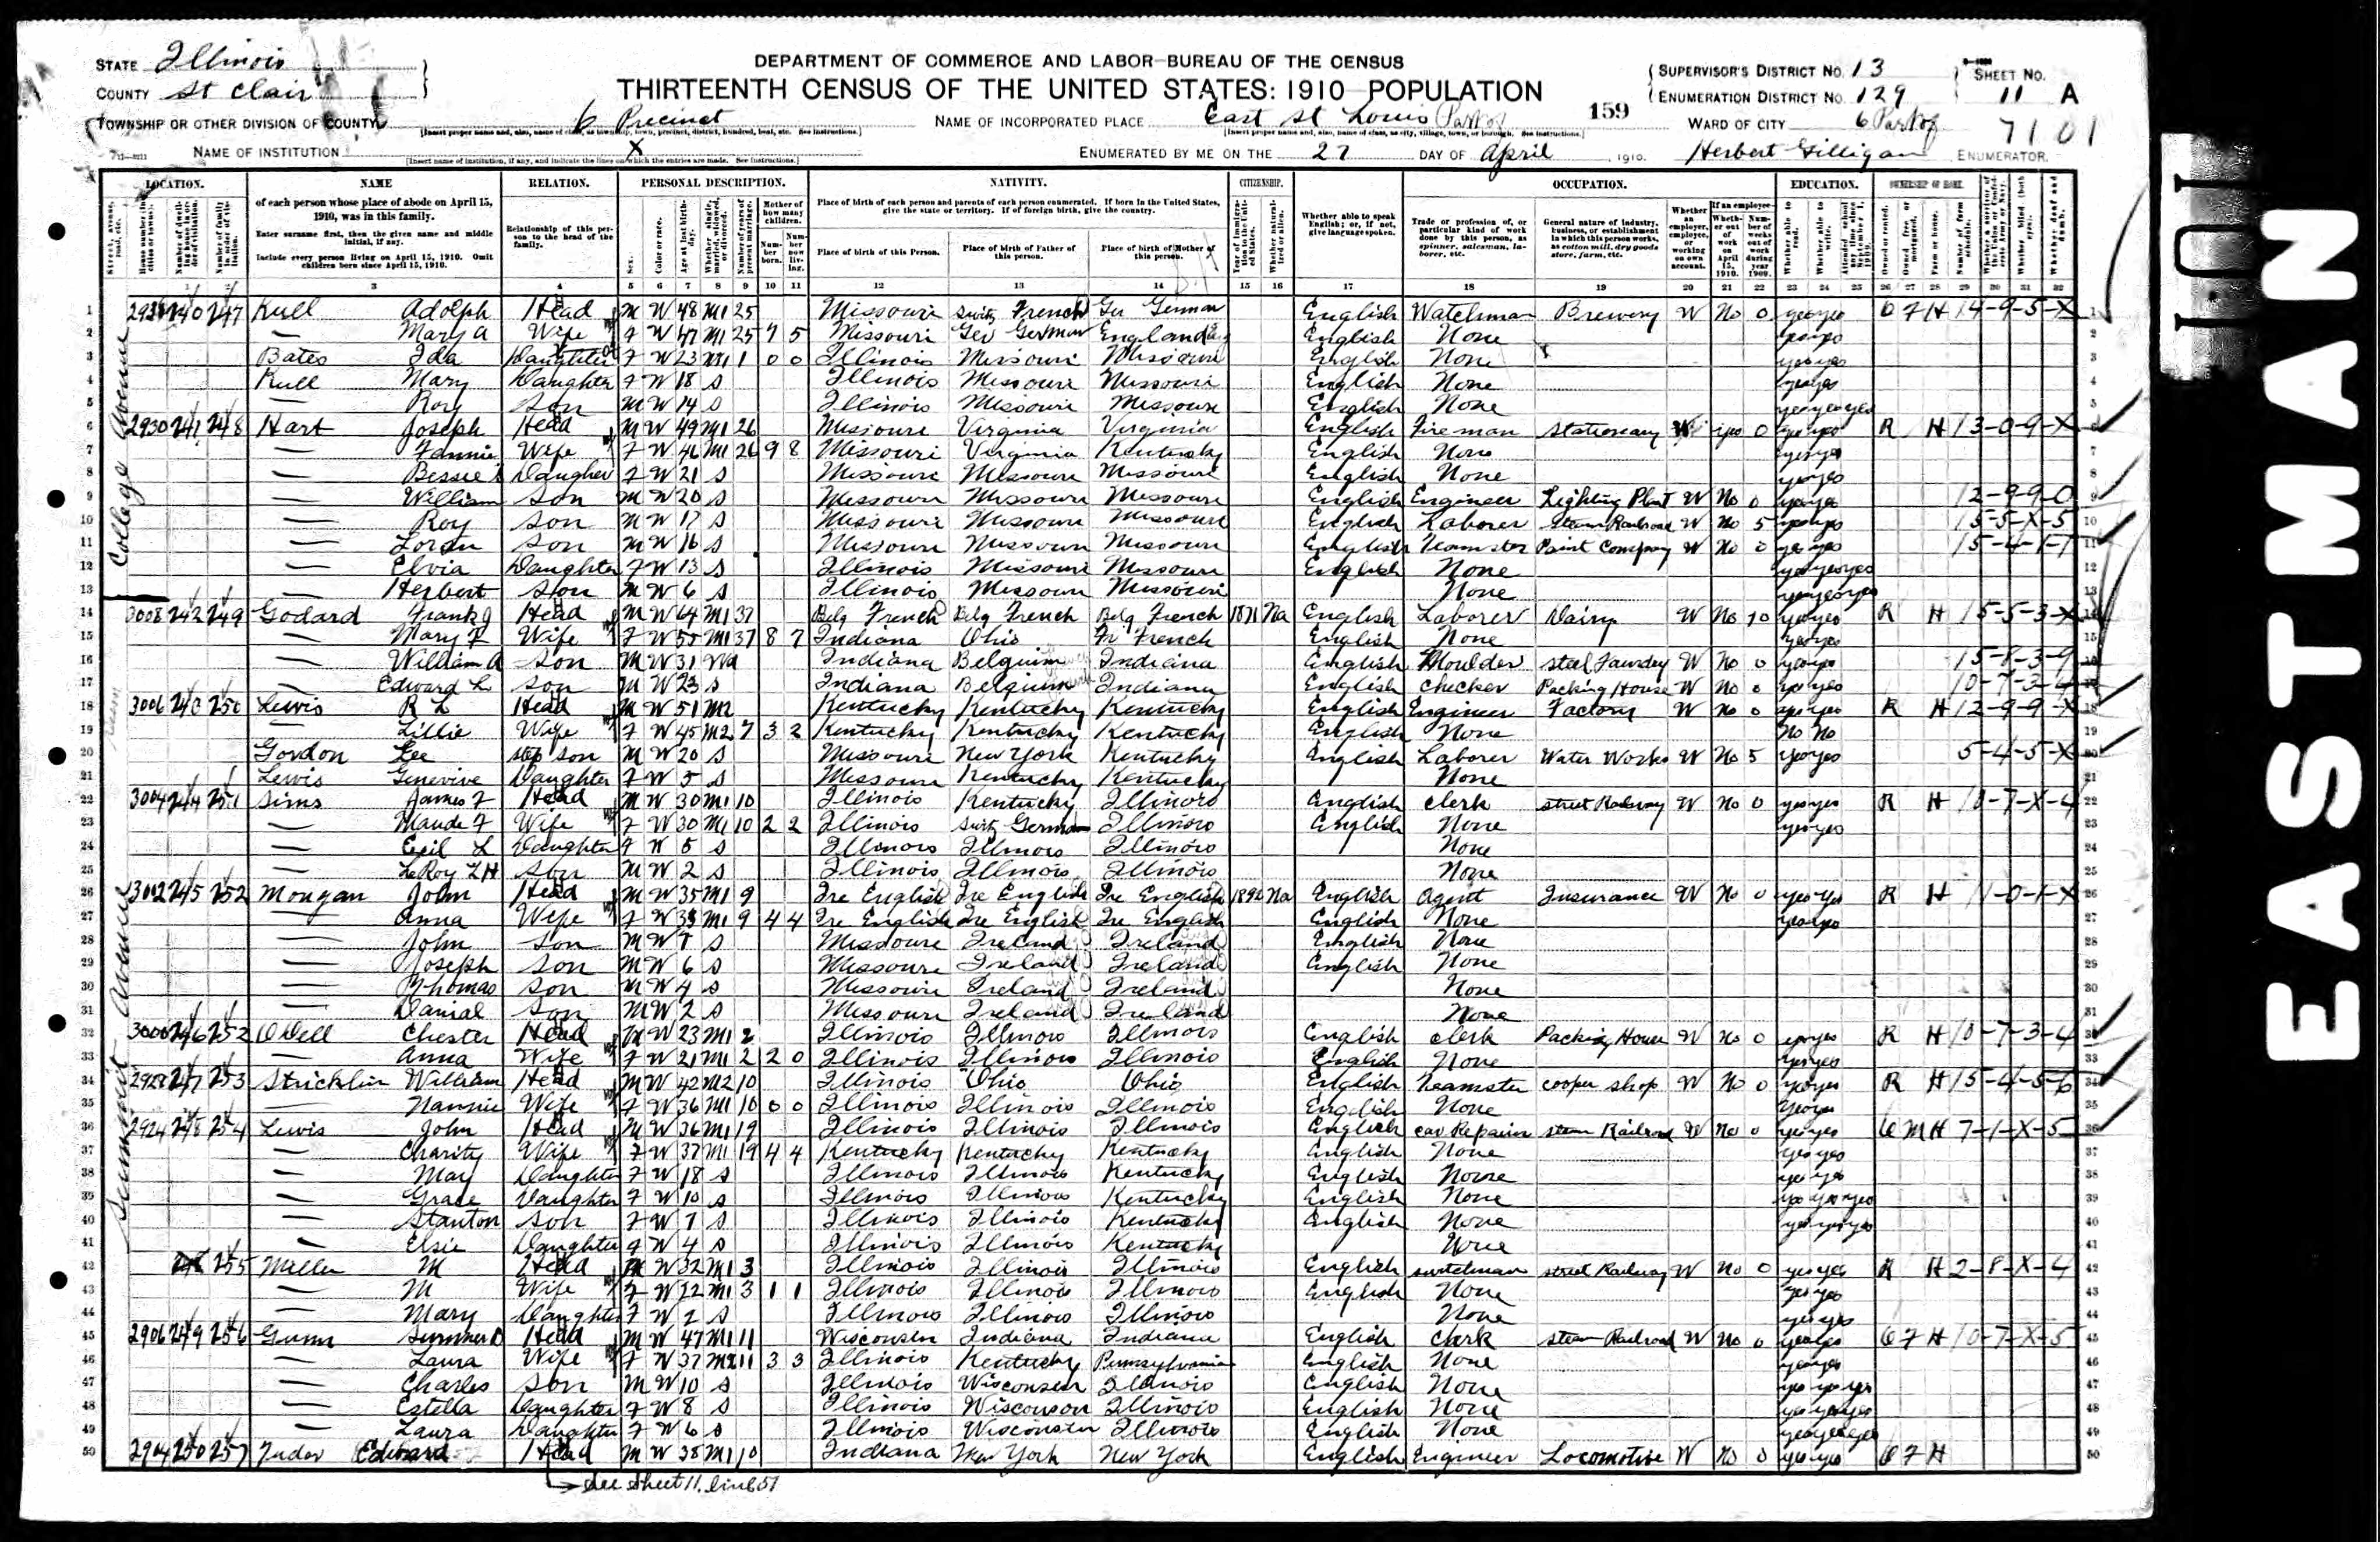 DEPARTMENT OF COMMERCE AND LABOR—BUREAU OF THE CENSUS
THIRTEENTH CENSUS OF THE UNITED STATES: 1910 POPULATION
STATE Illinois
COUNTY St Clair
TOWNSHIP OR OTHER DIVISION OF COUNTY 6 Precinct
NAME OF INSTITUTION X
NAME OF INCORPORATED PLACE East St Louis Part of
ENUMERATED BY ME ON THE 27 DAY OF April, 1910. Herbert Gilligan ENUMERATOR.
159
SUPERVISOR'S DISTRICT NO. 13
ENUMERATION DISTRICT NO. 129
WARD OF CITY 6 Part of
SHEET NO. 11 A
7101
LOCATION. NAME RELATION. PERSONAL DESCRIPTION. NATIVITY. CITIZENSHIP. OCCUPATION. EDUCATION. OWNERSHIP OF HOME.
of each person whose place of abode on April 15, 1910, was in this family.
Enter surname first, then the given name and middle initial, if any.
Include every person living on April 15, 1910. Omit children born since April 15, 1910.
Relationship of this person to the head of the family.
Place of birth of each person and parents of each person enumerated. If born in the United States, give the state or territory. If of foreign birth, give the country.
Place of birth of this Person. Place of birth of Father of this person. Place of birth of Mother of this person.
Whether able to speak English; or, if not, give language spoken.
Trade or profession of, or particular kind of work done by this person, as spinner, salesman, laborer, etc.
General nature of industry, business, or establishment in which this person works, as cotton mill, dry goods store, farm, etc.
College Avenue
1 240 247 Kull Adolph Head M W 48 M1 25 Missouri Switz French Ger German English Watchman Brewery W No 0 yes yes O F H 14-9-5-X
2 — Mary A Wife F W 47 M1 25 7 5 Missouri Ger German England English None yes yes
3 Bates Ida Daughter F W 23 M1 1 0 0 Illinois Missouri Missouri English None yes yes
4 Kull Mary Daughter F W 18 S Illinois Missouri Missouri English None yes yes
5 — Roy Son M W 14 S Illinois Missouri Missouri English None yes yes yes
6 2930 241 248 Hart Joseph Head M W 49 M1 26 Missouri Virginia Virginia English Fireman Stationary W yes 0 yes yes R H 13-0-9-X
7 — Fannie Wife F W 46 M1 26 9 8 Missouri Virginia Kentucky English None yes yes
8 — Bessie Daugher F W 21 S Missouri Missouri Missouri English None yes yes
9 — William Son M W 20 S Missouri Missouri Missouri English Engineer Lighting Plant W No 0 yes yes 12-9-9-0
10 — Roy Son M W 17 S Missouri Missouri Missouri English Laborer Steam Railroad W No 5 yes yes 15-5-X-5
11 — Loren Son M W 16 S Missouri Missouri Missouri English Teamster Paint Company W No 0 yes yes 15-4-1-1
12 — Elvia Daughter F W 13 S Illinois Missouri Missouri English None yes yes yes
13 — Herbert Son M W 6 S Illinois Missouri Missouri None yes yes yes
14 3008 242 249 Godard Frank J Head M W 64 M1 37 Belg French Belg French Belg French 1871 Na English Laborer Dairy W No 10 yes yes R H 15-5-3-X
15 — Mary F Wife F W 55 M1 37 8 7 Indiana Ohio Fr French English None yes yes
16 — William A Son M W 31 Wd Indiana Belguim Indiana English Moulder steel Foundry W No 0 yes yes 15-8-3-9
17 — Edward L Son M W 23 S Indiana Belgium Indiana English Checker Packing House W No 0 yes yes 10-7-3-4
18 3006 250 Lewis R L Head M W 51 M2 Kentucky Kentucky Kentucky English Engineer Factory W No 0 yes yes R H 12-9-9-X
19 — Lillie Wife F W 45 M2 7 3 2 Kentucky Kentucky Kentucky English None No No
20 Gordon Lee step son M W 20 S Missouri New York Kentucky English Laborer Water Works W No 5 yes yes 5-4-5-X
21 Lewis Genevive Daughter F W 5 S Missouri Kentucky Kentucky None
22 3004 244 251 Sims James F Head M W 30 M1 10 Illinois Kentucky Illinois English Clerk street Railway W No 0 yes yes R H 10-7-X-4
23 — Maude F Wife F W 30 M1 10 2 2 Illinois Switz German Illinois English None yes yes
24 — Cecil L Daughter F W 5 S Illinois Illinois Illinois None
25 — LeRoy L H Son M W 2 S Illinois Illinois Illinois None
Summit Avenue
26 3002 245 252 Mongan John Head M W 35 M1 9 Ire English Ire English Ire English 1892 Na English Agent Insurance W No 0 yes yes R H 11-0-1-X
27 — Anna Wife F W 35 M1 9 4 4 Ire English Ire English Ire English English None yes yes
28 — John Son M W 7 S Missouri Ireland Ireland English None
29 — Joseph Son M W 6 S Missouri Ireland Ireland English None
30 — Thomas Son M W 4 S Missouri Ireland Ireland None
31 — Danial Son M W 2 S Missouri Ireland Ireland None
32 3000 246 252 O'Dell Chester Head M W 23 M1 2 Illinois Illinois Illinois English Clerk Packing House W No 0 yes yes R H 10-7-3-4
33 — Anna Wife F W 21 M1 2 2 0 Illinois Illinois Illinois English None yes yes
34 2928 247 253 Stricklin William Head M W 42 M2 10 Illinois Ohio Ohio English Teamster cooper shop W No 0 yes yes R H 15-4-5-6
35 — Nannie Wife F W 36 M1 10 0 0 Illinois Illinois Illinois English None yes yes
36 2924 248 254 Lewis John Head M W 36 M1 19 Illinois Illinois Illinois English car Repairer steam Railroad W No 0 yes yes O M H 7-1-X-5
37 — Charity Wife F W 37 M1 19 4 4 Kentucky Kentucky Kentucky English None yes yes
38 — May Daughter F W 18 S Illinois Illinois Kentucky English None yes yes
39 — Grace Daughter F W 10 S Illinois Illinois Kentucky English None yes yes yes
40 — Stanton Son F W 7 S Illinois Illinois Kentucky English None yes yes yes
41 — Elsie Daughter F W 4 S Illinois Illinois Kentucky None
42 255 Miller M Head M W 32 M1 3 Illinois Illinois Illinois English switchman street Railway W No 0 yes yes R H 2-8-X-4
43 — M Wife F W 22 M1 3 1 1 Illinois Illinois Illinois English None yes yes
44 — Mary Daughter F W 2 S Illinois Illinois Illinois None yes yes
45 2906 249 256 Gunn Head M W 47 M1 11 Wisconsin Indiana Indiana English Clerk steam Railroad W No 0 yes yes O F H 10-7-X-5
46 — Laura Wife F W 37 M2 11 3 3 Illinois Kentucky Pennsylvania English None yes yes
47 — Charles Son M W 10 S Illinois Wisconsin Illinois English None yes yes yes
48 — Estella Daughter F W 8 S Illinois Wisconson Illinois English None yes yes yes
49 — Laura Daughter F W 6 S Illinois Wisconsin Illinois English None yes yes yes
50 2904 250 257 Tudor Edward Head M W 38 M1 10 Indiana New York New York English Engineer Locomotive W No 0 yes yes O F H
See sheet 11, line 51
EASTMAN